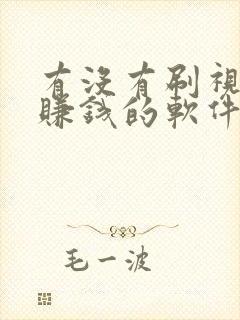 有没有刷視
賺錢的軟件
毛一波